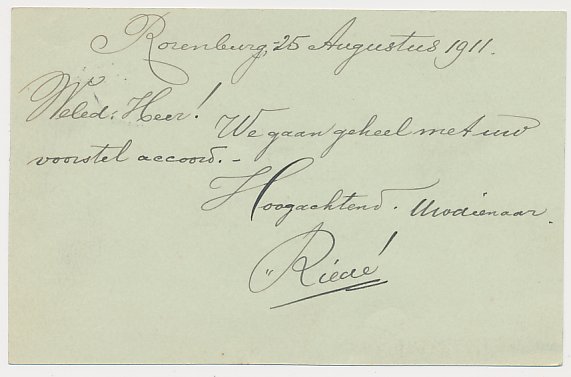 Rozenburg, 25 Augustus 1911.
Weled: Heer!
We gaan geheel met uw
voorstel accoord. -
Hoogachtend. Uwdienaar.
"Riedé!